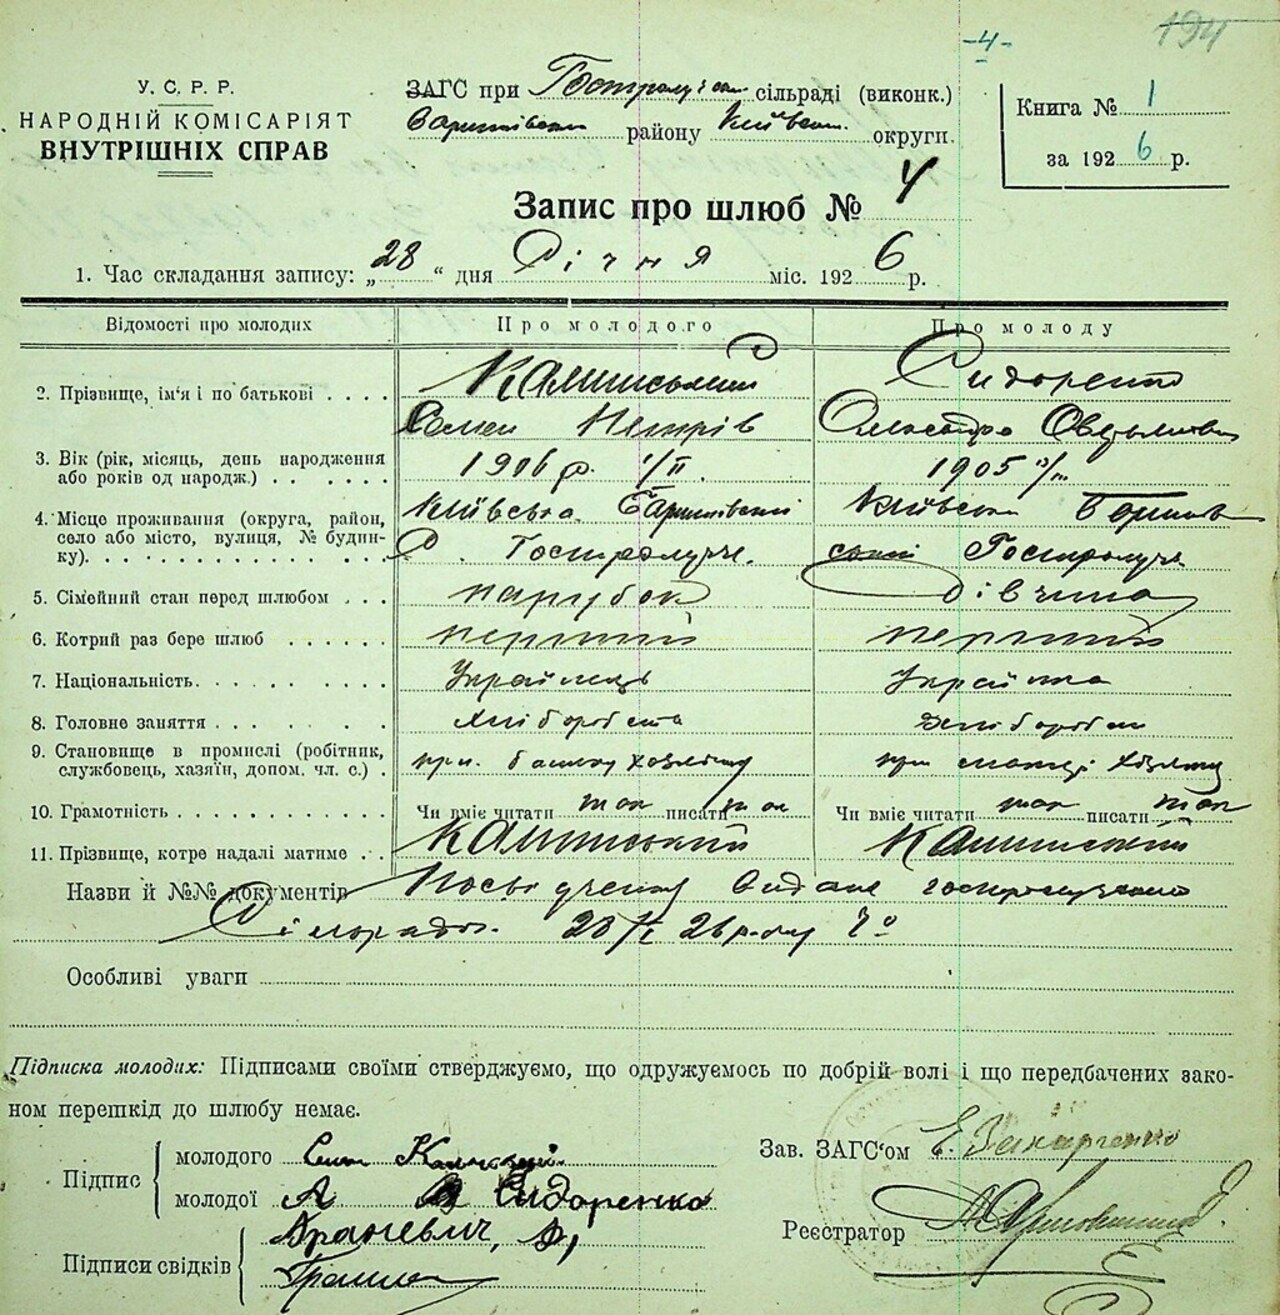 194
-4-
У. С. Р. Р.
НАРОДНІЙ КОМІСАРІЯТ
ВНУТРІШНІХ СПРАВ
ЗАГС при сільраді (виконк.)
району Київськ. округи.
Книга № 1
за 1926 р.
Запис про шлюб № 4
1. Час складання запису: „28“ дня Січня міс. 1926 р.
Відомості про молодих Про молодого Про молоду
2. Прізвище, ім'я і по батькові . . . . Сидоренко
Семен Петрів Олександра
3. Вік (рік, місяць, день народження
або років од народж.) . . . . . . 1906 р. 1/II 1905
4. Місце проживання (округа, район,
село або місто, вулиця, № будин-
ку). . . . . . . . . . . . . .
Київська Баришівський Київськ
С. Гостролучє. Гостролуч
5. Сімейний стан перед шлюбом . . . парубок дівчина
6. Котрий раз бере шлюб . . . . . . перший перший
7. Національність. . . . . . . . . . Українець Українка
8. Головне заняття . . . . . . . . хліборобства хлібороб
9. Становище в промислі (робітник,
службовець, хазяїн, допом. чл. с.) . при батьку при матері
10. Грамотність . . . . . . . . . . . . Чи вміє читати так писати так Чи вміє читати так писати так
11. Прізвище, котре надалі матиме . . .
Назви й №№ документів Посвідчення видане
Сільрадою 28/I 26 року
Особливі уваги
Підписка молодих: Підписами своїми стверджуємо, що одружуємось по добрій волі і що передбачених зако-
ном перешкід до шлюбу немає.
Підпис
молодого
молодої А Сидоренко
Підписи свідків
Зав. ЗАГС'ом Е. Захарченко
Реєстратор